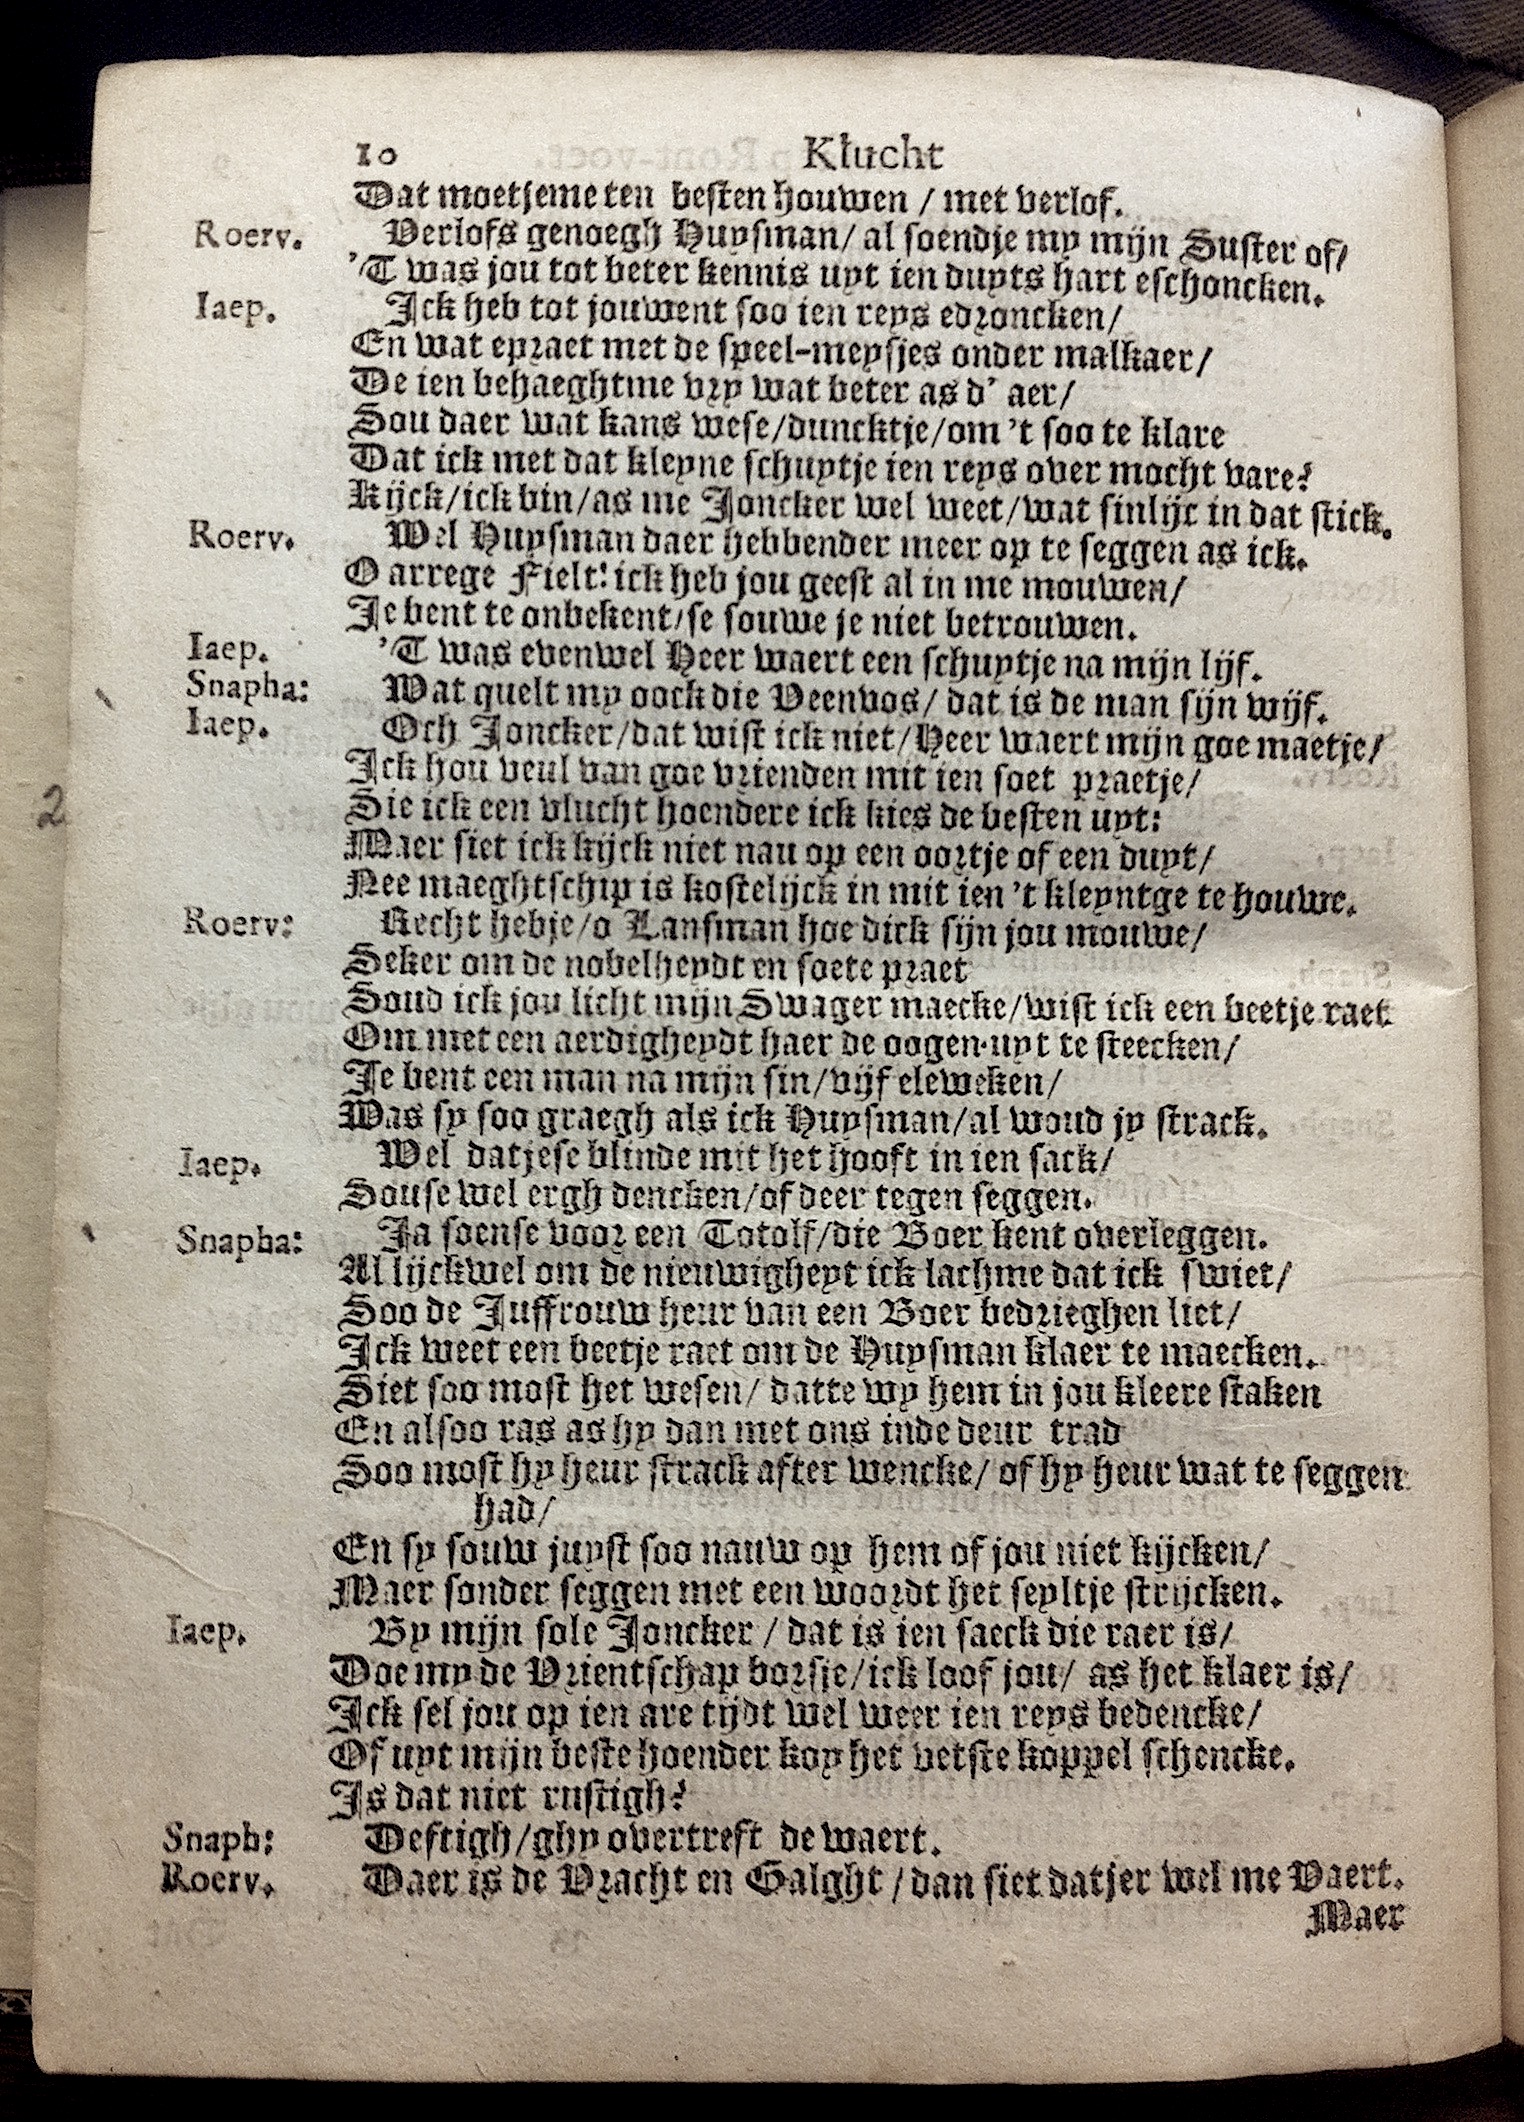 10 Klucht
Dat moetjeme ten besten houwen / met verlof.
Roerv. Verlofs genoegh Huysman/ al soendje my mijn Suster of/
'T was jou tot beter kennis uyt ien duyts hart eschoncken.
Iaep. Ick heb tot jouwent soo ien reys edroncken/
En wat epraet met de speel-meysjes onder malkaer/
De ien behaeghtme vry wat beter as d' aer/
Sou daer wat kans wese/duncktje/om 't soo te klare
Dat ick met dat kleyne schuytje ien reys over mocht vare?
Kijck/ick bin/as me Joncker wel weet/wat sinlijc in dat stick.
Roerv. Wel Huysman daer hebbender meer op te seggen as ick.
O arrege Fielt! ick heb jou geest al in me mouwen/
Je bent te onbekent/se souwe je niet betrouwen.
Iaep. 'T was evenwel Heer waert een schuytje na mijn lijf.
Snapha: Wat quelt my oock die Veenvos/ dat is de man sijn wijf.
Iaep. Och Joncker/dat wist ick niet/Heer waert mijn goe maetje/
Ick hou veul van goe vrienden mit ien soet praetje/
2
Sie ick een vlucht hoendere ick kies de besten uyt:
Maer siet ick kijck niet nau op een oortje of een duyt/
Nee maeghtschip is kostelijck in mit ien 't kleyntge te houwe.
Roerv: Recht hebje/o Lansman hoe dick sijn jou mouwe/
Seker om de nobelheydt en soete praet
Soud ick jou licht mijn Swager maecke/wist ick een beetje raet
Om met een aerdigheydt haer de oogen uyt te steecken/
Je bent een man na mijn sin/vijf eleweken/
Was sy soo graegh als ick Huysman/al woud jy strack.
Iaep. Wel datjese blinde mit het hooft in ien sack/
Souse wel ergh dencken/of deer tegen seggen.
Snapha: Ja soense voor een Totolf/die Boer kent overleggen.
Al lijckwel om de nieuwigheyt ick lachme dat ick swiet/
Soo de Juffrouw heur van een Boer bedrieghen liet/
Ick weet een beetje raet om de Huysman klaer te maecken.
Siet soo most het wesen/ datte wy hem in jou kleere staken
En alsoo ras as hy dan met ons inde deur trad
Soo most hy heur strack after wencke/ of hy heur wat te seggen
had/
En sy souw juyst soo nauw op hem of jou niet kijcken/
Maer sonder seggen met een woordt het seyltje strijcken.
Iaep. By mijn sole Joncker / dat is ien saeck die raer is/
Doe my de Vrientschap borsje/ick loof jou/ as het klaer is/
Ick sel jou op ien are tijdt wel weer ien reys bedencke/
Of uyt mijn beste hoender koy het vetste koppel schencke.
Is dat niet rustigh?
Snaph: Deftigh/ghy overtreft de waert.
Roerv. Daer is de Vracht en Galght /dan siet datjer wel me Vaert.
Maer